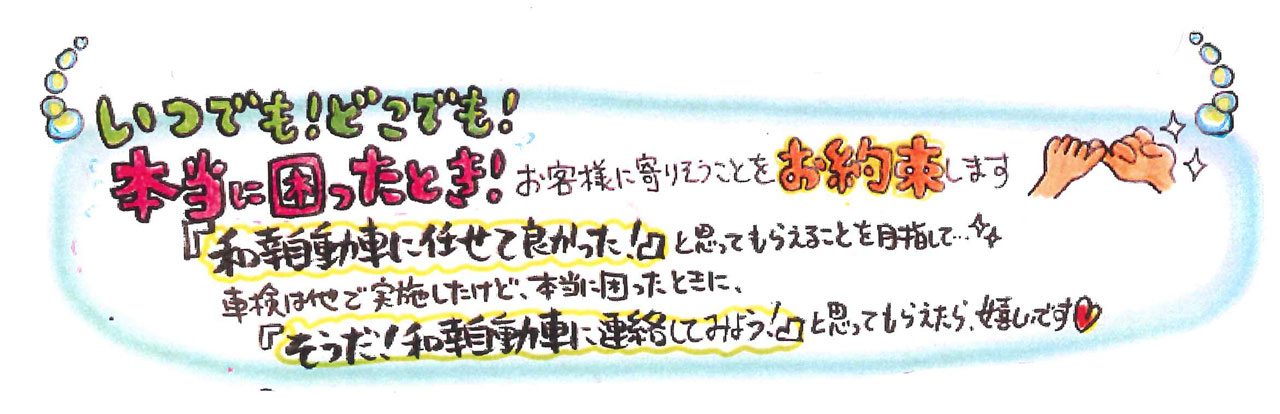 いつでも!どこでも!
本当に困ったとき!お客様に寄りそうことをお約束します
『和幸自動車に任せて良かった!』と思ってもらえることを目指して…
車検は他で実施したけど、本当に困ったときに、
『そうだ!和幸自動車に連絡してみよう!』と思ってもらえたら、嬉しいです